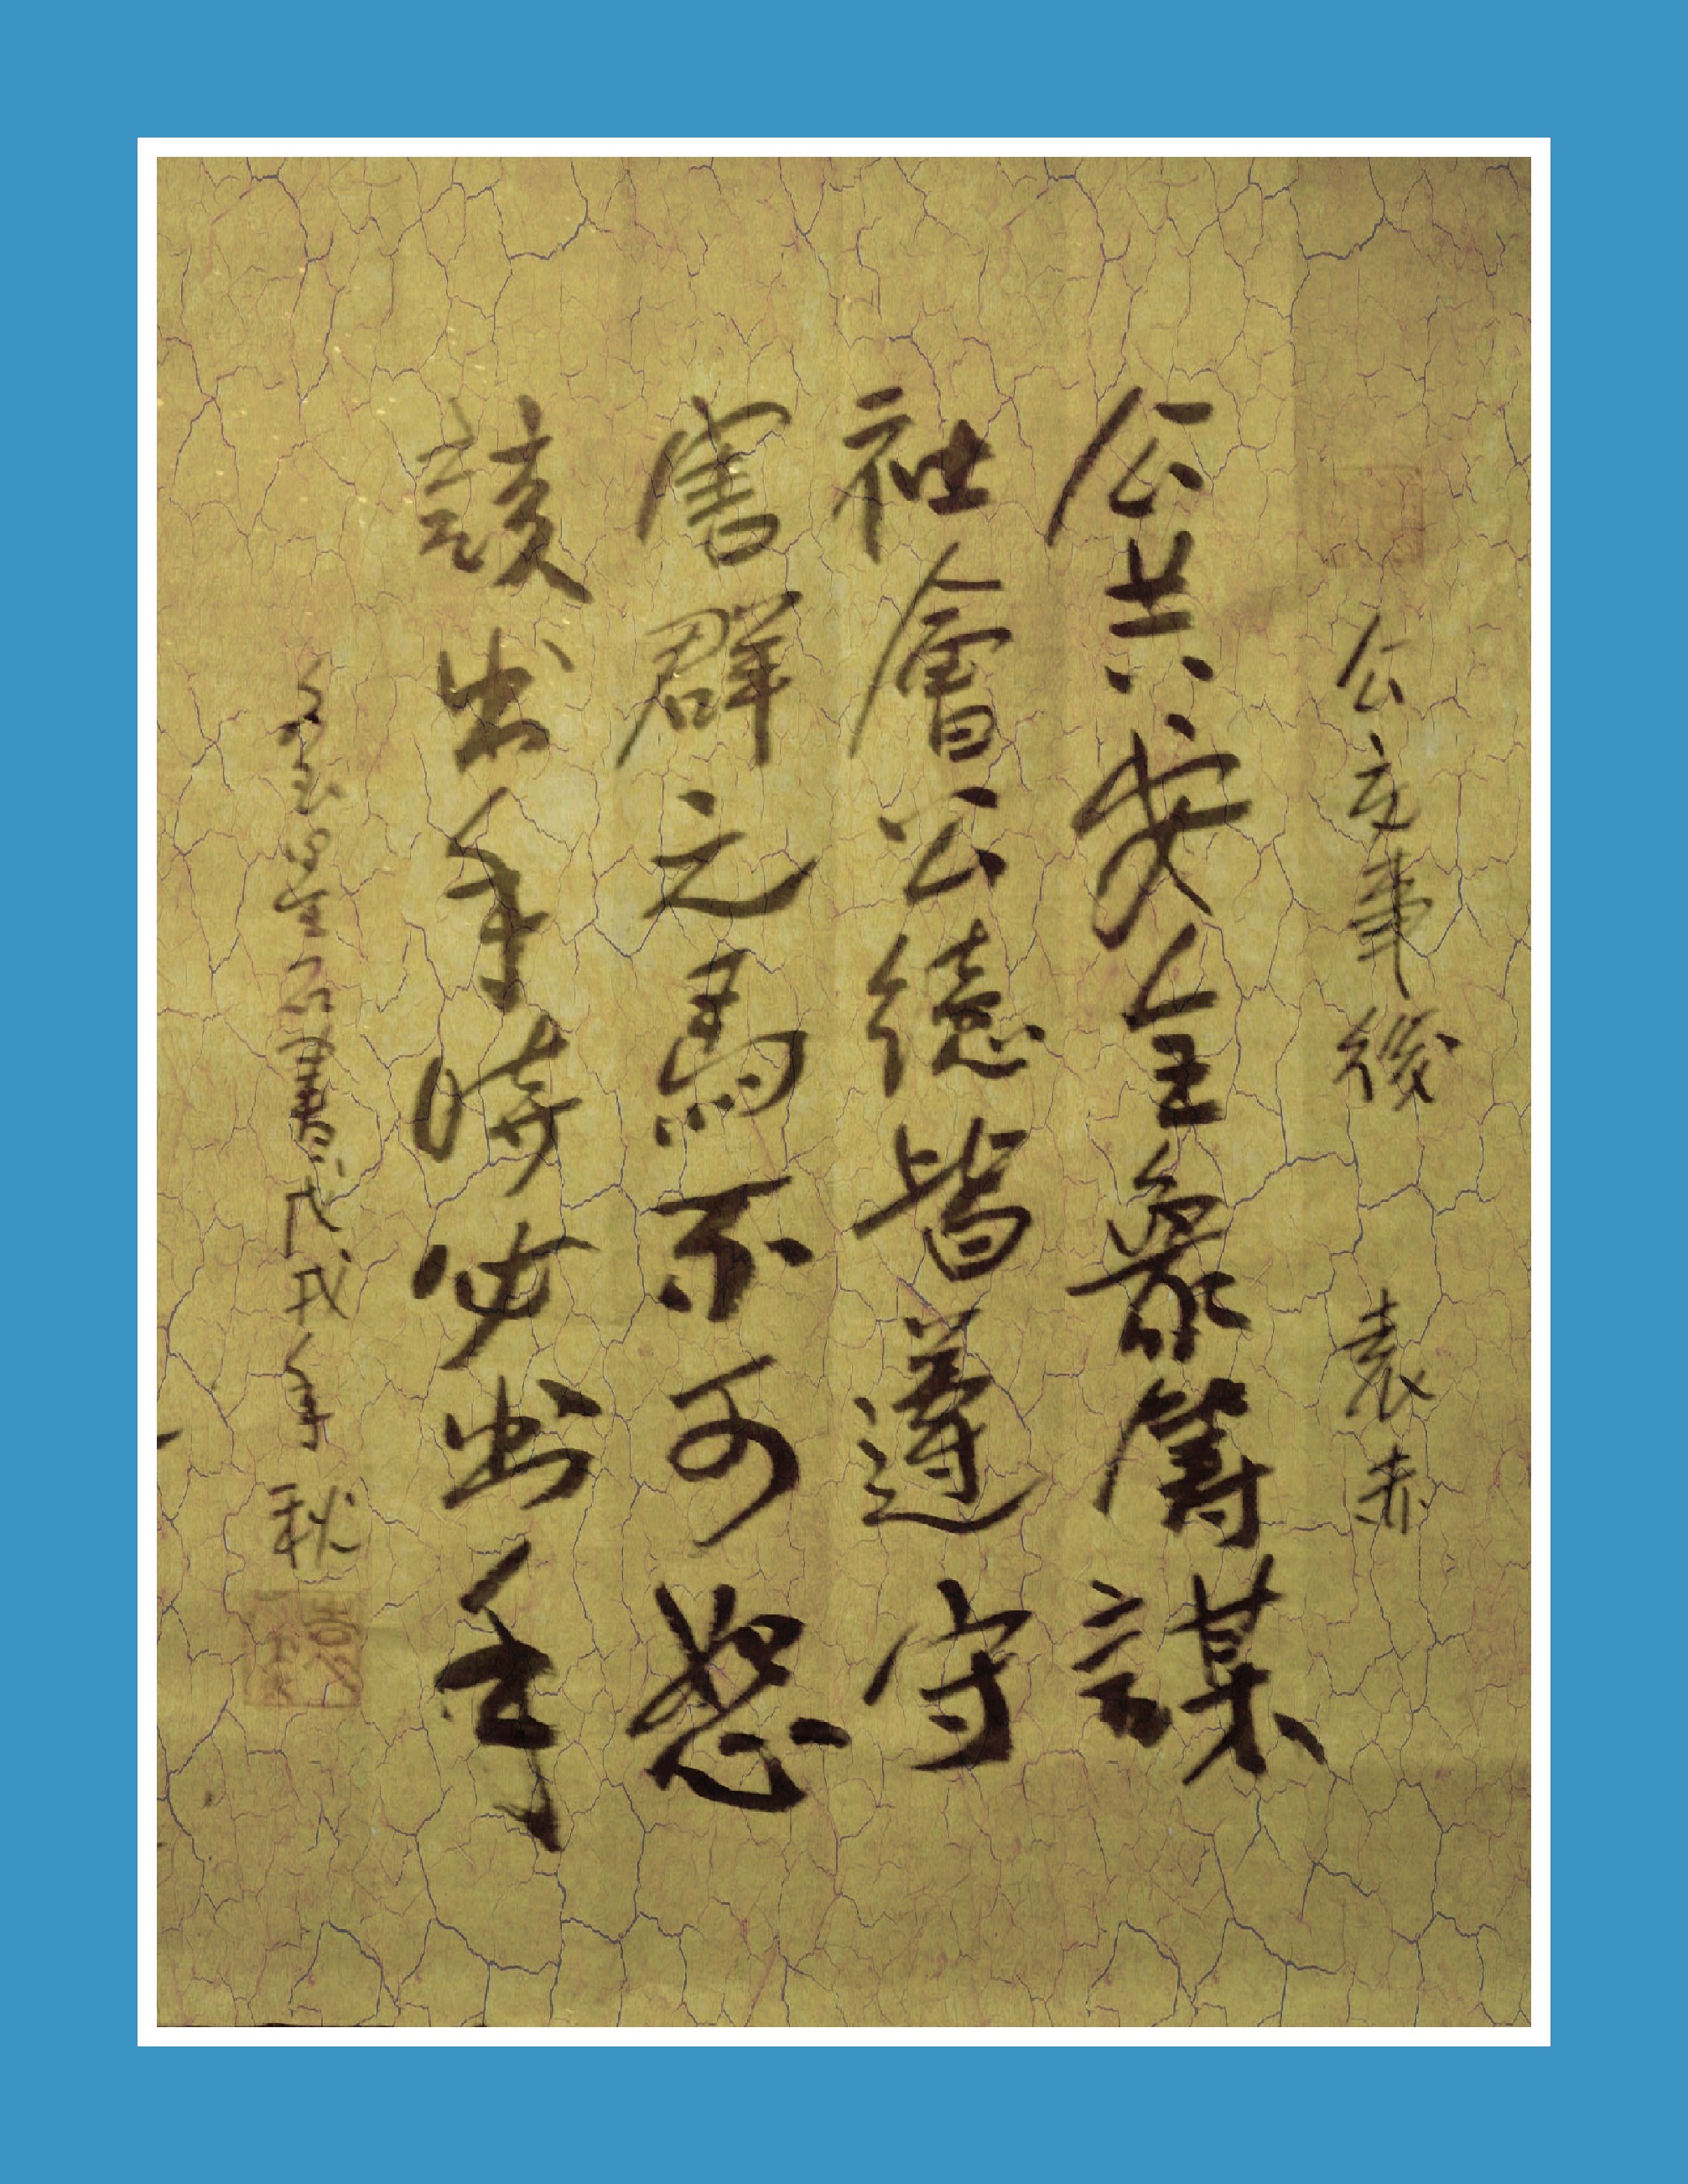 公交事後 袁赤
公共安全衆籌謀
社會公德皆遵守
害群之馬不可恕
該出手時必出手
書 戊戌年秋